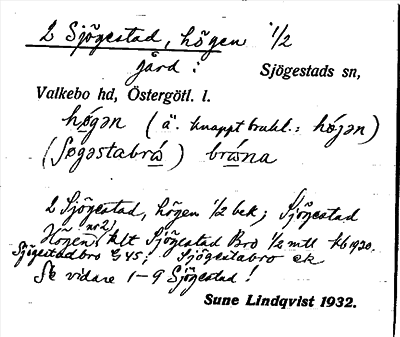 2 Sjögestad, högen 1/2
gård:
Sjögestads sn,
Valkebo hd, Östergötl. l.
hǿgən (ä. knappt brukl.: hǿjən)
(Søgəstabrå) bråna
2 Sjögestad, högen 1/2 bek; Sjögestad
Högen (nr 2) klt Sjögestad Bro 1/2 mtl kb 1930.
Sjögestadbro G 45; Sjögestabro ek
Se vidare 1–9 Sjögestad!
Sune Lindqvist 1932.